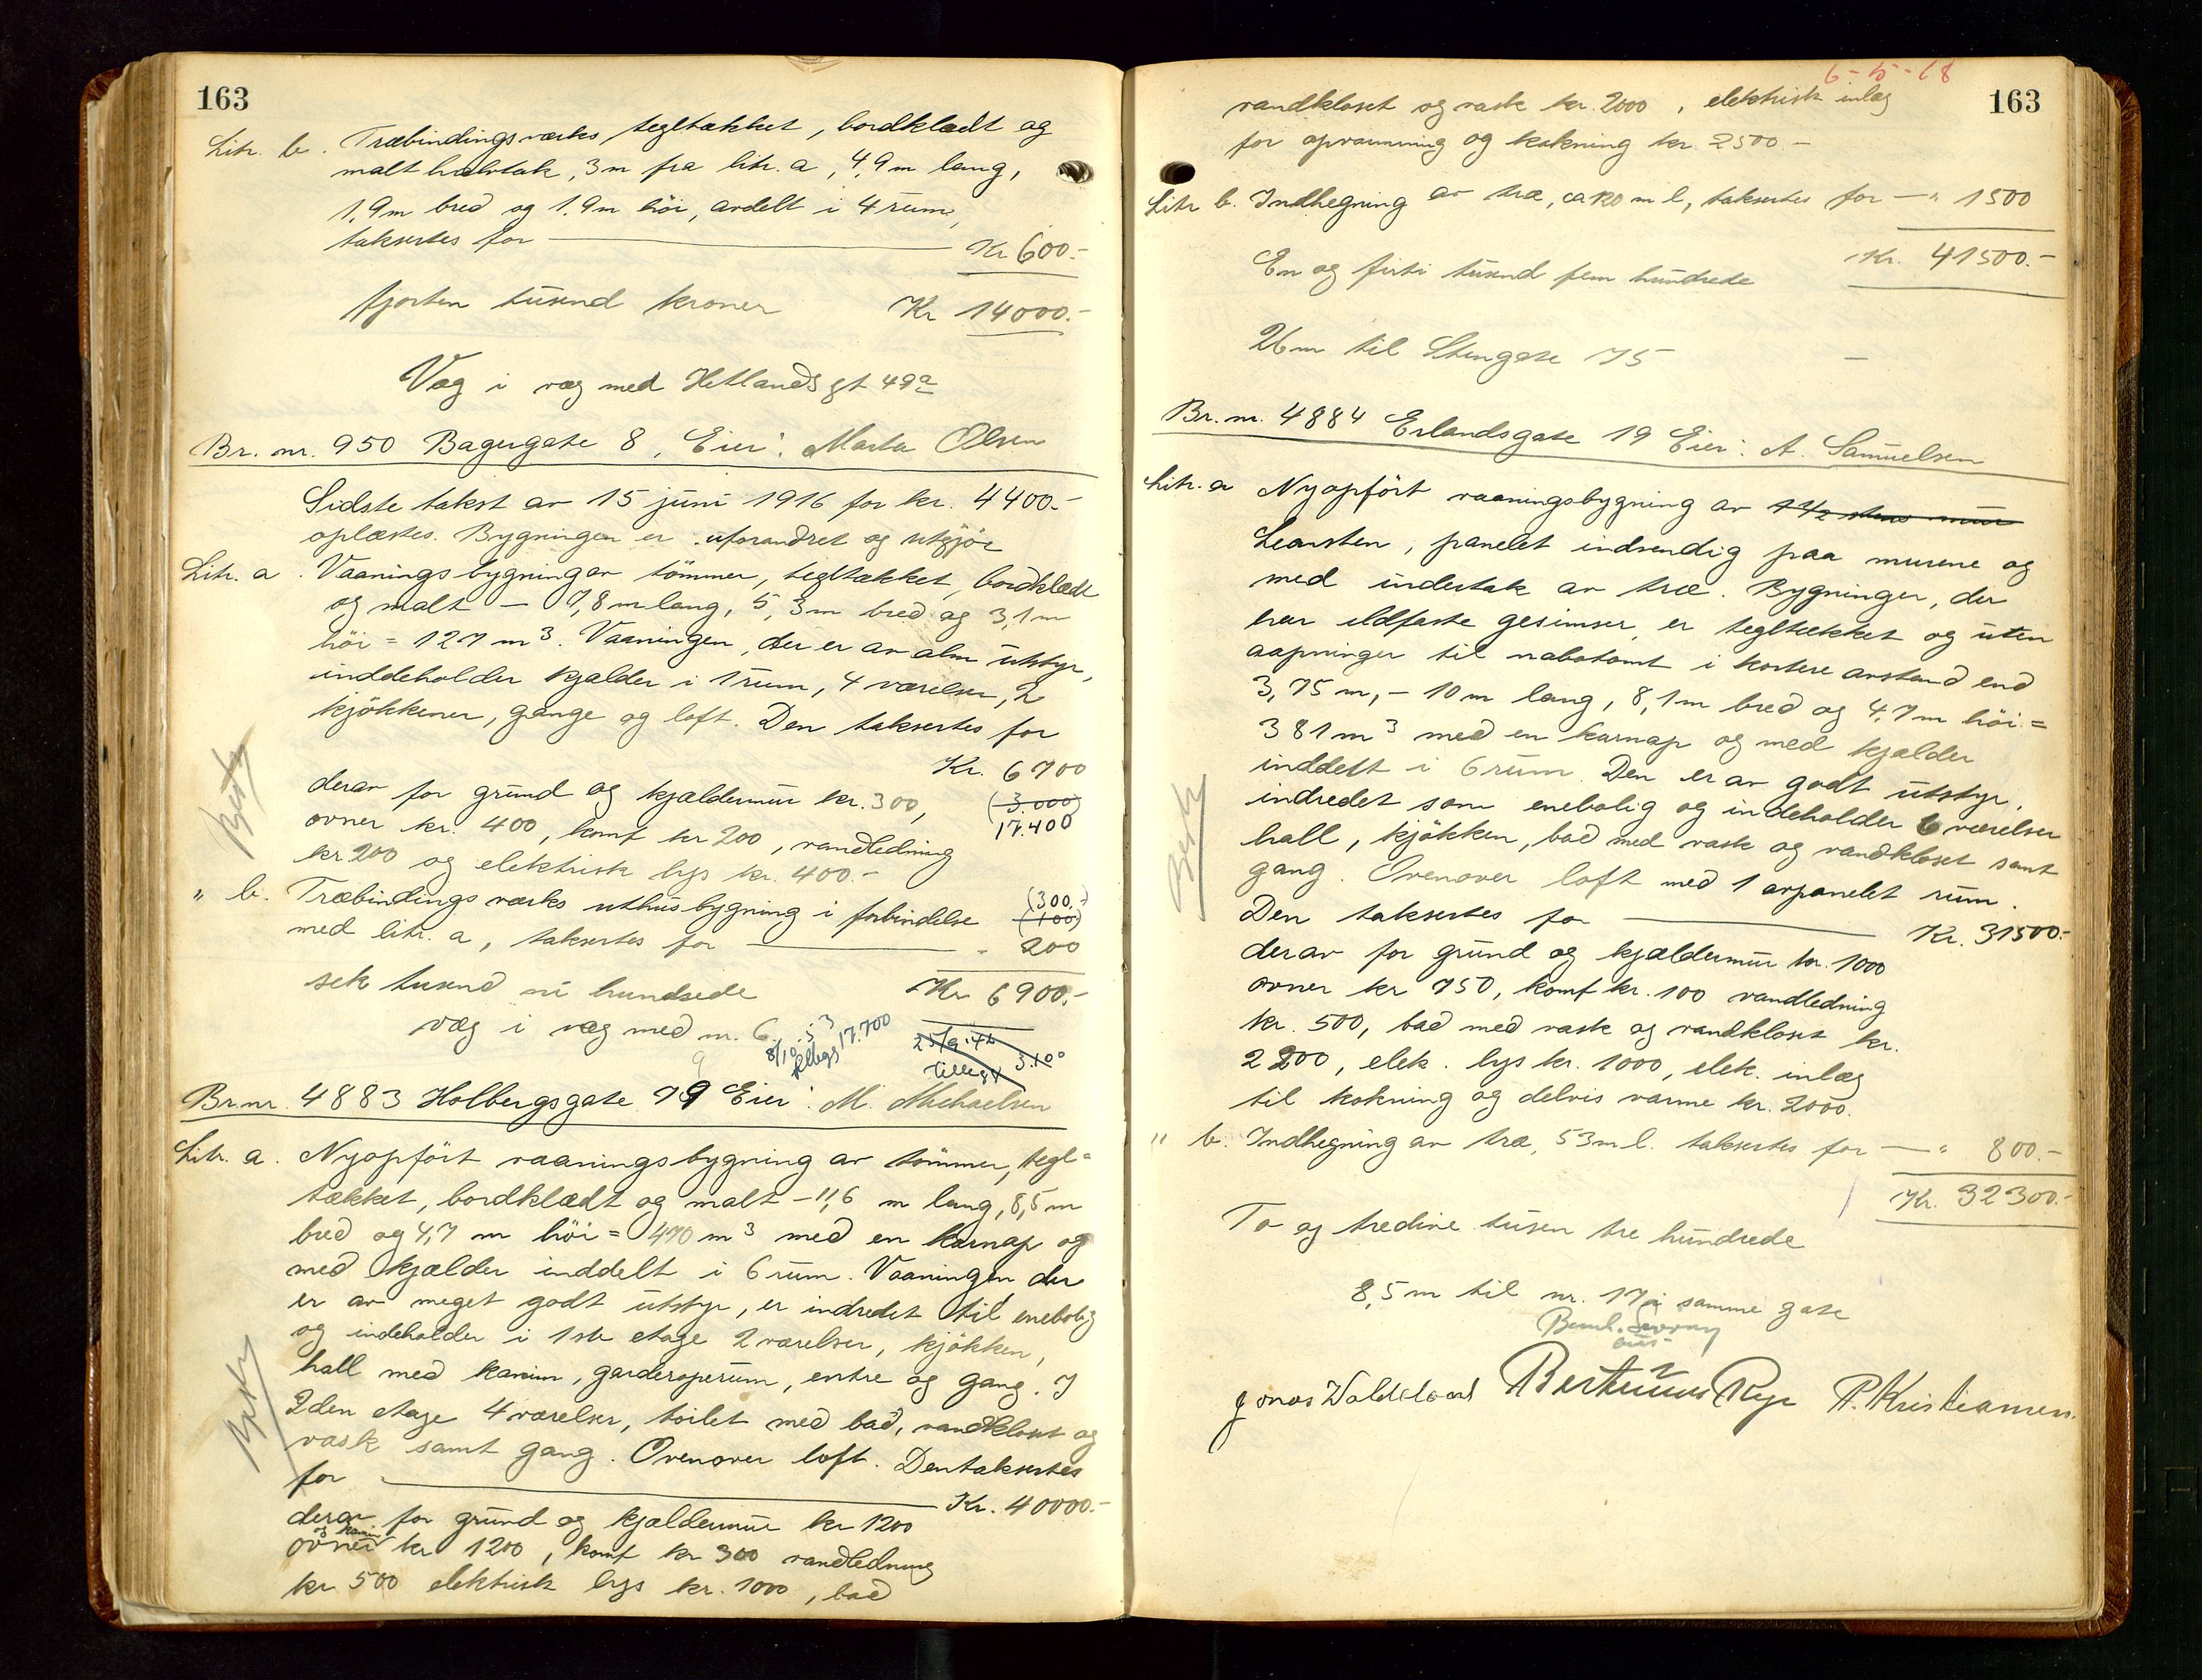 163
Litr. b. Træbindingsværks tegltækket, bordklædt og
malt halvtak, 3 m fra litr. a, 4,9 m lang,
1,9 m bred og 1,9 m höi, avdelt i 4 rum,
taksertes for — Kr 600.-
fjorten tusend kroner Kr 14000.-
Væg i væg med Hetlandsgt 49a
Br. nr. 950 Bagergate 8, Eier: Marta Olsen
Sidste takst av 15 juni 1916 for kr. 4400.-
oplæstes. Bygningen er uforandret og utgjör
Litr. a. Vaaningsbygning av tömmer, tegltækket, bordklædt
og malt — 7,8 m lang, 5,3 m bred og 3,1 m
höi = 127 m3. Vaaningen, der er av alm utstyr,
inddeholder kjælder i 1 rum, 4 værelser, 2
kjökkener, gange og loft. Den taksertes for
Kr. 6700
derav for grund og kjældermur kr. 300, (3000)
ovner kr. 400, komf kr 200, vandledning 17.400
kr 200 og elektrisk lys kr. 400.-
" b. Træbindingsværks uthusbygning i forbindelse (300.-)
(100)
med litr. a, taksertes for — " 200
seks tusend ni hundrede Kr 6900.-
væg i væg med nr. 6.
8/10-53 17.700
tillegg
25/9-46
tillegg 3.100
9
Br. nr. 4883 Holbergsgate 79 Eier: M. Michaelsen
Litr. a. Nyopfört vaaningsbygning av tömmer, tegl=
tækket, bordklædt og malt — 11,6 m lang, 8,5 m
bred og 4,7 m höi = 470 m3 med en karnap og
med kjælder inddelt i 6 rum. Vaaningen der
er av meget godt utstyr, er indredet til enebolig
og indeholder i 1ste etage 2 værelser, kjökken,
hall med kamin, garderoperum, entre og gang. I
2den etage 4 værelser, toilet med bad, vandkloset og
vask samt gang. Ovenover loft. Den taksertes
for — Kr. 40000.-
derav for grund og kjældermur kr 1200
og kamin
ovner kr 1200, komf kr 300 vandledning
kr. 500 elektrisk lys kr. 1000, bad
6-5-68
163
vandkloset og vask kr. 2000, elektrisk inlæg
for opvarmning og kokning kr. 2500.-
Litr b. Indhegning av træ, ca 120 m l, taksertes for — " 1500
Kr. 41500.-
En og firti tusend fem hundrede
26 m til Stengate 75
Br. nr. 4884 Erlandsgate 19 Eier: A. Samuelsen
Litr. a Nyopfört vaaningsbygning av 1 1/2 stens mur
Leansten, panelet indvendig paa murene og
med undertak av træ. Bygninger, der
har ildfaste gesimser, er tegltækket og uten
aapninger til nabotomt i kortere avstand end
3,75 m, — 10 m lang, 8,1 m bred og 4,7 m höi =
381 m3 med en karnap og med kjælder
inddelt i 6 rum. Den er av godt utstyr,
indredet som enebolig og indeholder 6 værelser
hall, kjökken, bad med vask og vandkloset samt
gang. Ovenover loft med 1 avpanelet rum.
Den taksertes for — Kr. 31500.-
derav for grund og kjældermur kr. 1000
ovner kr 750, komf kr. 100 vandledning
kr. 500, bad med vask og vandkloset kr.
2200, elek. lys kr. 1000, elek. inlæg
til kokning og delvis varme kr. 2000.
" b. Indhegning av træ, 53 m l. taksertes for — " 800.-
Kr. 32300.-
To og tredive tusen tre hundrede
8,5 m til nr. 17 i samme gate
Bertinius Rye P. Kristiansen